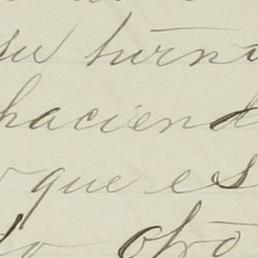 su turn
haciend
que es
otro